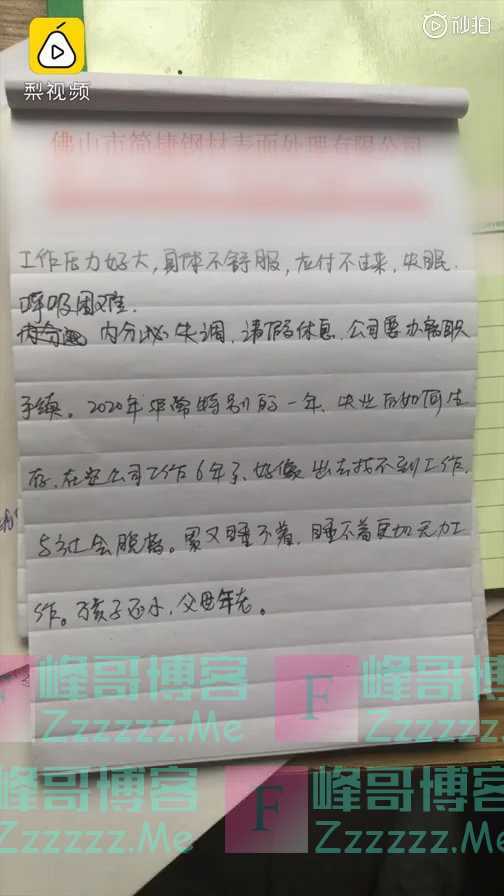 梨视频
秒拍
佛山市简捷钢材表面处理有限公司
工作压力好大,身体不舒服,应付不过来,失眠.
呼吸困难.
内分泌失调,请假休息,公司要办离职
手续。2020年非常特别的一年、失业后如何生
存,在空公司工作6年了、好像出去找不到工作,
与社会脱轨。累又睡不着,睡不着更加无力工
作。孩子还小,父母年老。
峰哥博客
Zzzzzz.Me
F
峰哥博客
Zzzzzz.Me
峰哥博客
Zzzzzz.Me
F
峰哥博客
Zzzzzz.Me